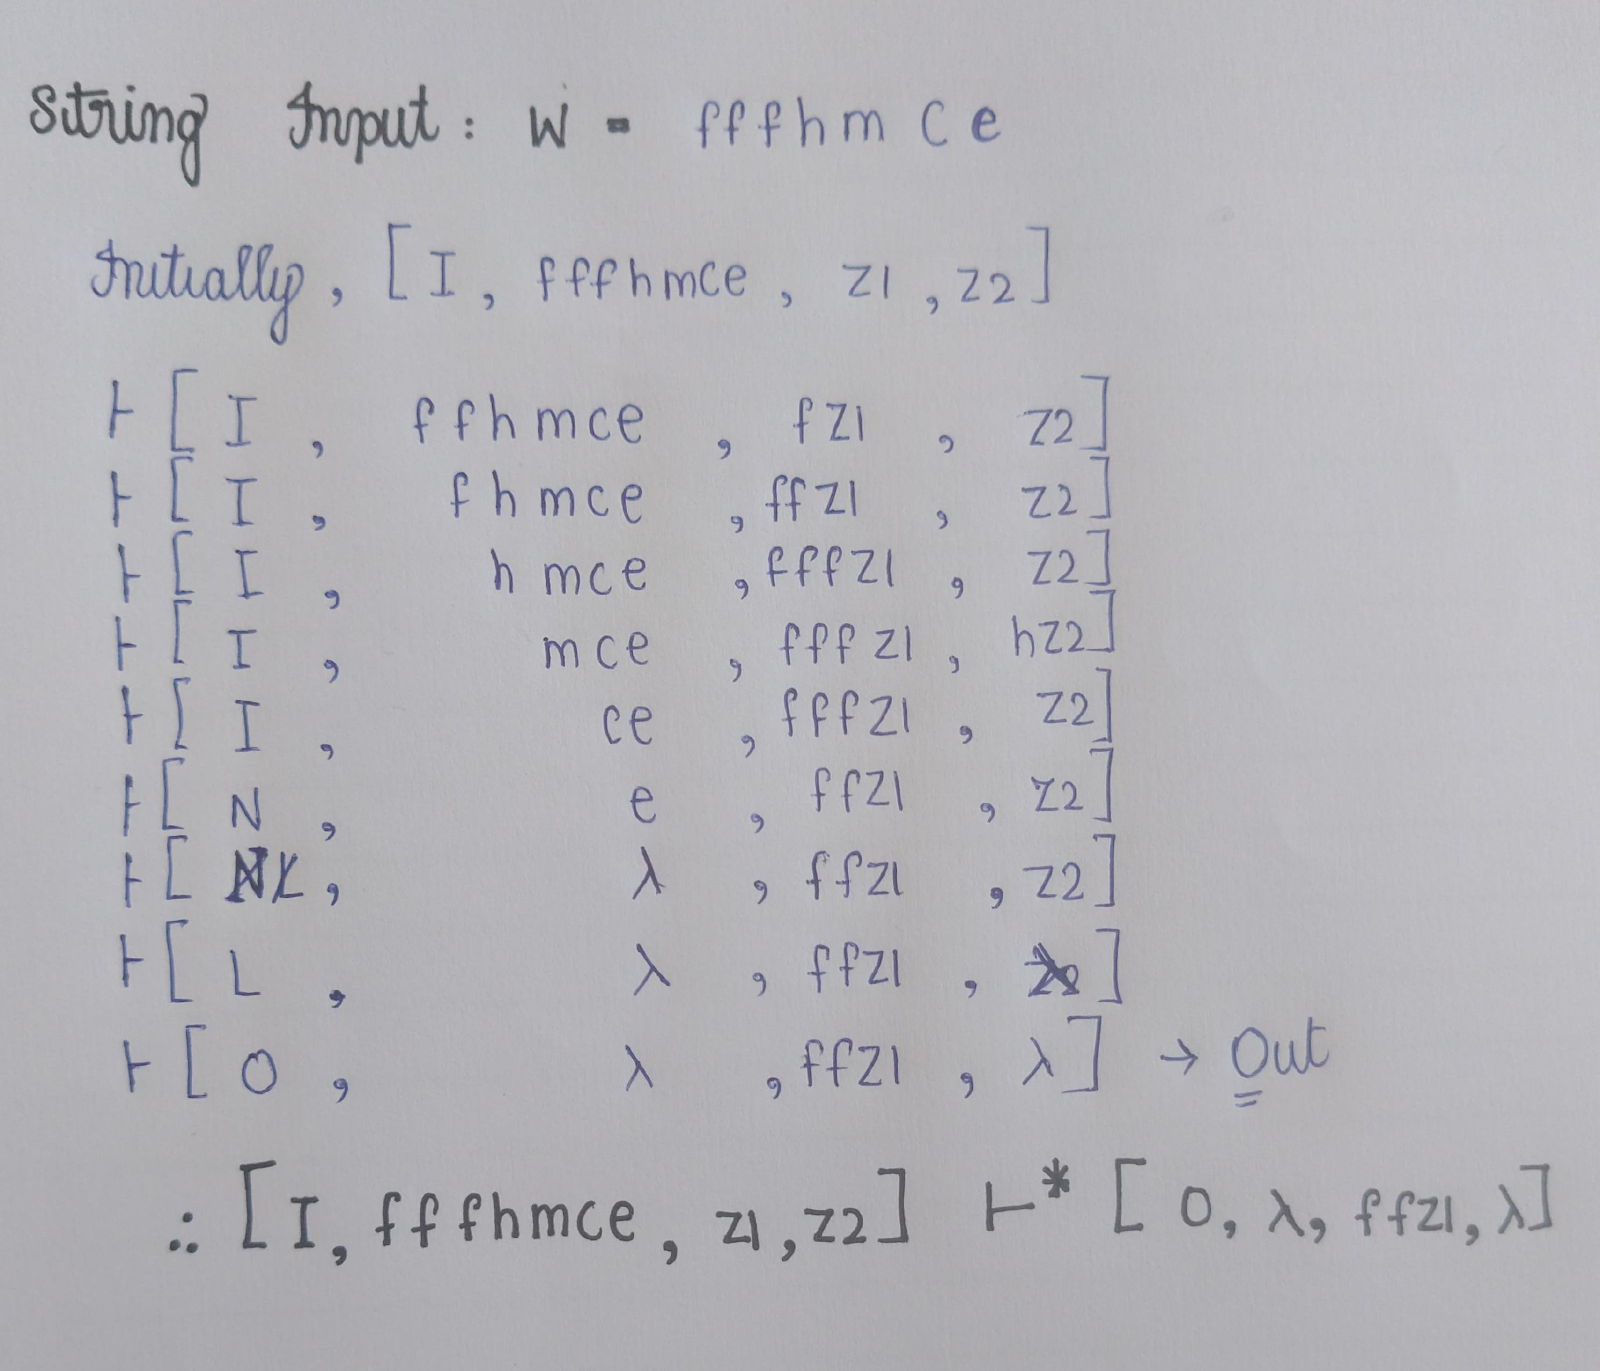 String Input: W = fffhmce
Initially, [I, fffhmce, z1, z2]
⊢ [I, ffhmce, fz1, z2]
⊢ [I, fhmce, ffz1, z2]
⊢ [I, hmce, fffz1, z2]
⊢ [I, mce, fffz1, hz2]
⊢ [I, ce, fffz1, z2]
⊢ [N, e, ffz1, z2]
⊢ [L, λ, ffz1, z2]
⊢ [L, λ, ffz1, λ]
⊢ [O, λ, ffz1, λ] → Out
∴ [I, fffhmce, z1, z2] ⊢* [O, λ, ffz1, λ]